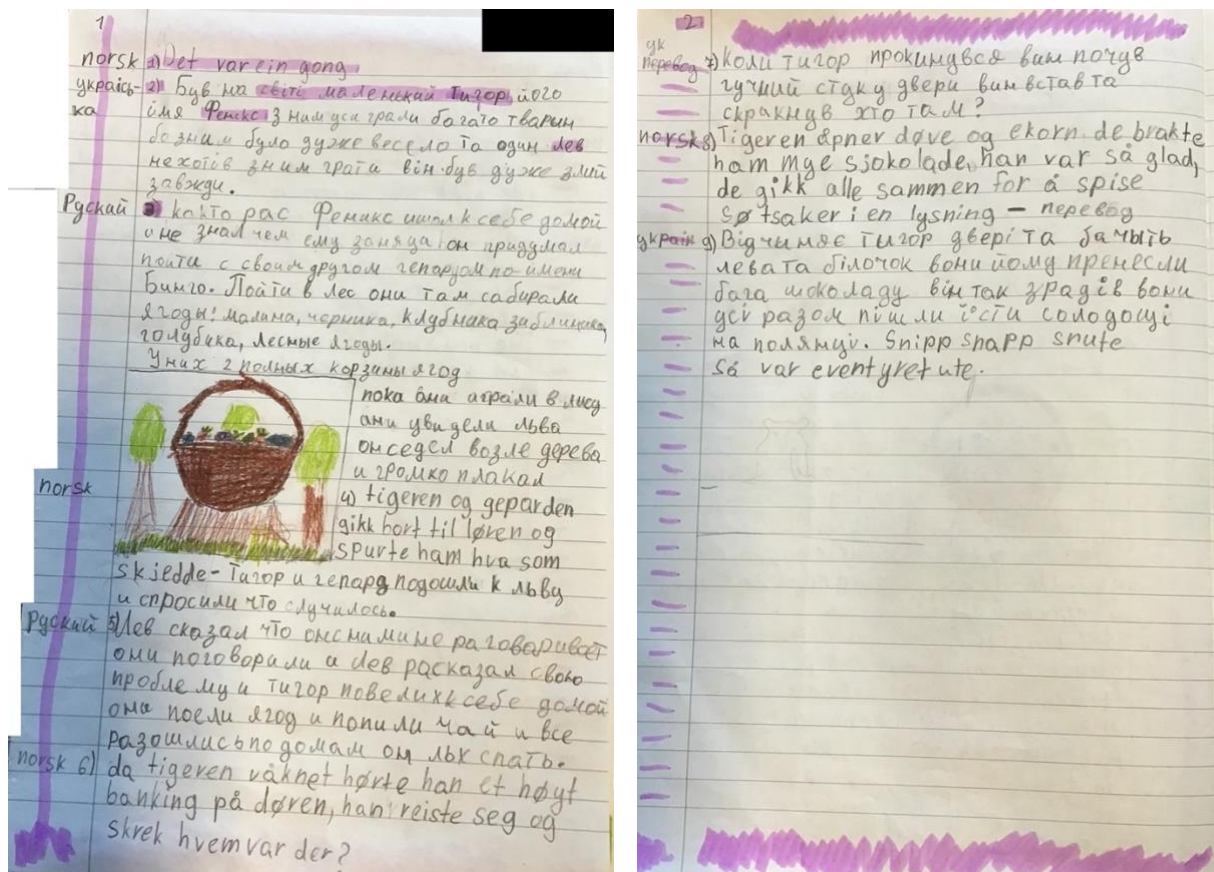 1
norsk 1) Det var ein gong
українсь- 2) Був на світі маленький тигор його
ка імя Фенікс З ним уси грали богато тварин
бо зним було дуже весело та один лев
нехотів зним грати він був дуже злий
завжди.
Руский 3 както рас Феникс ишол к себе домой
и не знал чем ему заняца он придумал
поити с своим другом гепардом по имени
Бинго. Пойти в лес они там сабирали
ягоды: малина, черника, клубника
голубика, лесные ягоды.
У них 2 полных корзины ягод
пока ани аграли в лису
ани увидели льва
он седел возле дерева
и громко плакал
norsk 4) tigeren og geparden
gikk bort til løren og
spurte ham hva som
skjedde - Тигор и гепард подошли к льву
и спросили что случилось.
Руский 5) Лев сказал что онснамине раговаривает
они поговорили и лев расказал свою
проблему и тигор повелихксебе домой
они поели ягод и попили чай и все
разошлисьпо домам он лья спать.
norsk 6) da tigeren våknet hørte han et høyt
banking på døren, han reiste seg og
skrek hvem var der?
2
ук
перевод 7) Коли тигор прокинувся вин почув
гучний стук у двери вин встав та
скракнув хто там?
norsk 8) Tigeren åpner døve og ekorn. de brakte
ham mye sjokolade, han var så glad,
de gikk alle sammen for å spise
søtsaker i en lysning - перевод
україн 9) Відчиняє тигор двері та бачыть
лева та білочок вони йому пренесли
бага шоколаду він так зрадів вони
усі разом пішли їсти солодощі
на полянці. Snipp snapp snute
så var eventyret ute.